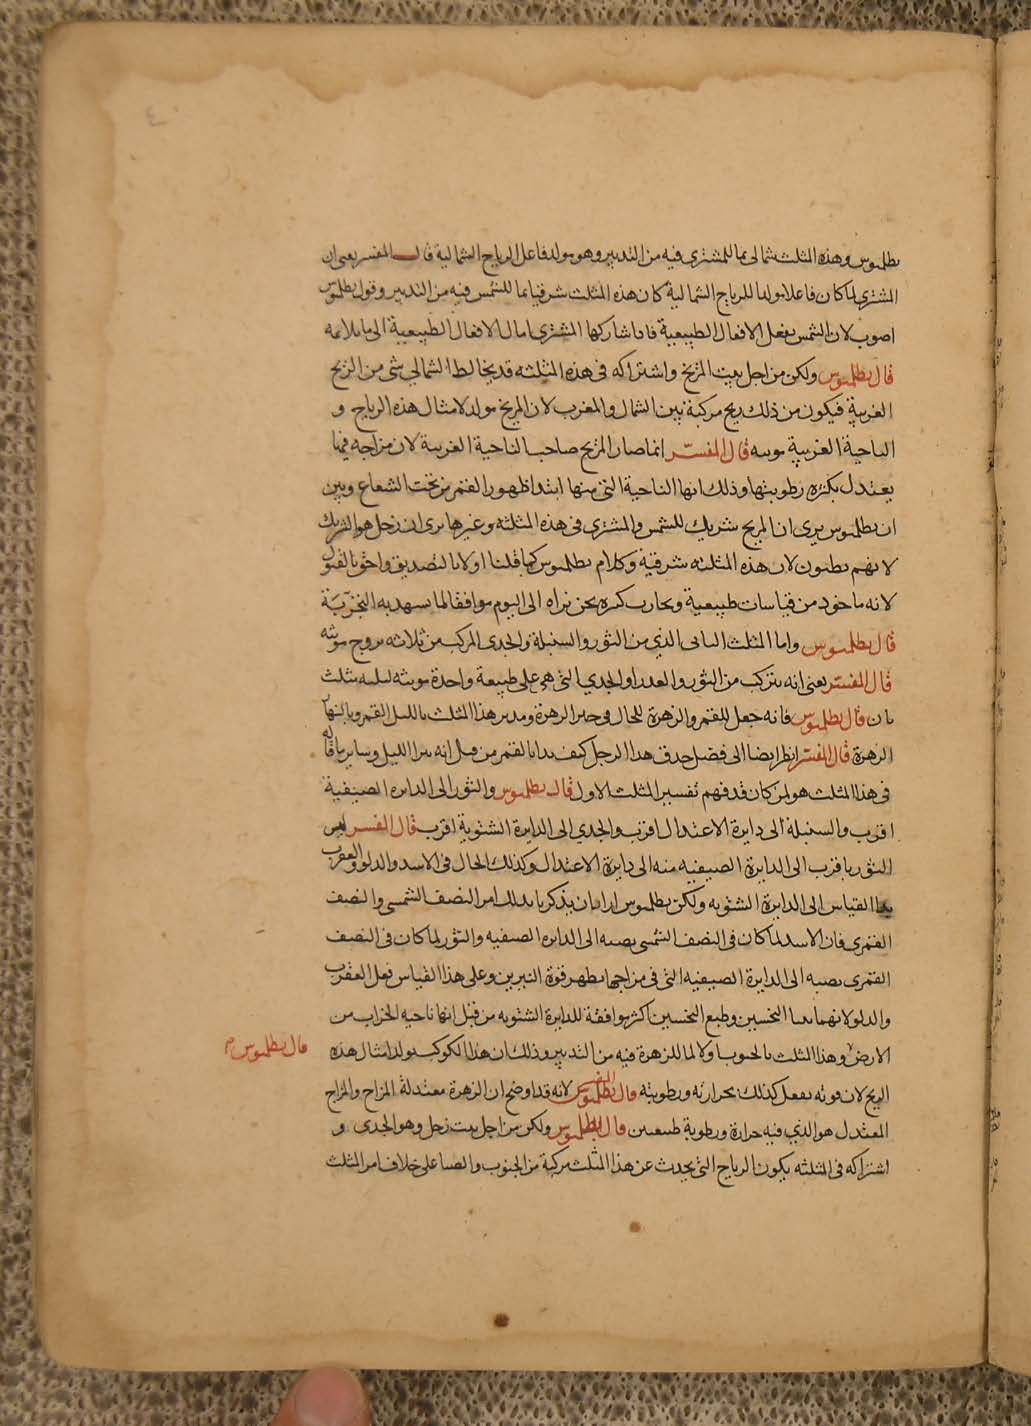 بطلميوس وهذه المثلث شمالى بما للمشترى فيه من التدبير وهو مولد فاعل الرياح الشمالية قال المفسر يعنى ان
المشترى لما كان فاعلا مولدا للرياح الشمالية كان هذه المثلث شرقيا بما للشمس فيه من التدبير وقول بطلميوس
اصوب لان الشمس يفعل الافعال الطبيعية فاذا شاركها المشترى امال الافعال الطبيعية الى ما يلائمه
قال بطلميوس ولكن من اجل بيت المريخ واشتراكه فى هذه المثلثه قد يخالط الشمالى شى من الريح
الغربية فيكون من ذلك ريح مركبة بين الشمال والمغرب لان المريخ مولد لامثال هذه الرياح و
الناحية الغربية قال المفسر انما صار المريخ صاحب الناحية الغربية لان مزاجه فيها
يعتدل بكثره رطوبتها وذلك انها الناحية التى منها ابتدا ظهور القمر من تحت الشعاع وبين
ان بطلميوس يرى ان المريخ شريك للشمس والمشترى فى هذه المثلثه وغيرها يرى ان زحل هو الشريك
لانهم يظنون لان هذه المثلثه شرقية وكلام بطلميوس كما قلنا اولا بالتصديق واحق بالقبول
لانه ماخوذ من قياسات طبيعية وتجارب كثيره نحن نراه الى اليوم موافقا لما يشهد به التجربة
قال بطلميوس واما المثلث الثانى الذى من الثور والسنبلة والجدى المركب من ثلاثه بروج مونثه
قال المفسر يعنى انه يتركب من الثور والعذرا والجدى التى هى على طبيعة واحدة مونثه مثلث
قال بطلميوس فانه جعل للقمر والزهرة للحال فى حيز الزهرة ومدبر هذا المثلث بالليل القمر وبالنهار
الزهرة قال المفسر انظر ايضا الى فضل حذق هذا الرجل كيف بدا بالقمر من قبل انه نير الليل وساير ما قاله
فى هذا المثلث هو لمن كان قد فهم تفسير المثلث الاول قال بطلميوس والثور الى الدايره الصيفية
اقرب والسنبلة الى دايرة الاعتدال اقرب والجدى الى الدايرة الشتوية اقرب قال المفسر ليس
الثور باقرب الى الدايرة الصيفيه منه الى دايرة الاعتدال وكذلك الحال فى الاسد والدلو والعقرب
بهذا القياس الى الدايرة الشتويه ولكن بطلميوس اراد ان يذكر بذلك امر النصف الشمسى والنصف
القمرى فان الاسد لما كان فى النصف الشمسى نصبه الى الدايره الصيفيه والثور لما كان فى النصف
القمرى نصبه الى الدايرة الصيفيه التى فى مزاجها يظهر قوة النيرين وعلى هذا القياس فعل العقرب
والدلو لانهما بيتا النحسين وطبع النحسين اكثر موافقة للدايرة الشتويه من قبل انها ناحيه الخراب من
الارض وهذا المثلث بالجنوب اولا لما للزهرة فيه من التدبير وذلك ان هذا الكوكب يولد امثال هذه
قال بطلميوس
الريح لان قوته يفعل كذلك بحرارته ورطوبته قال المفسر لانه قد اوضح ان الزهرة معتدلة المزاج والمزاج
المعتدل هو الذى فيه حرارة ورطوبة طبيعيتين قال بطلميوس ولكن من اجل بيت زحل وهو الجدى و
اشتراكه فى المثلثه يكون الرياح التى يحدث عن هذا المثلث مركبة من الجنوب والصبا على خلاف امر المثلث